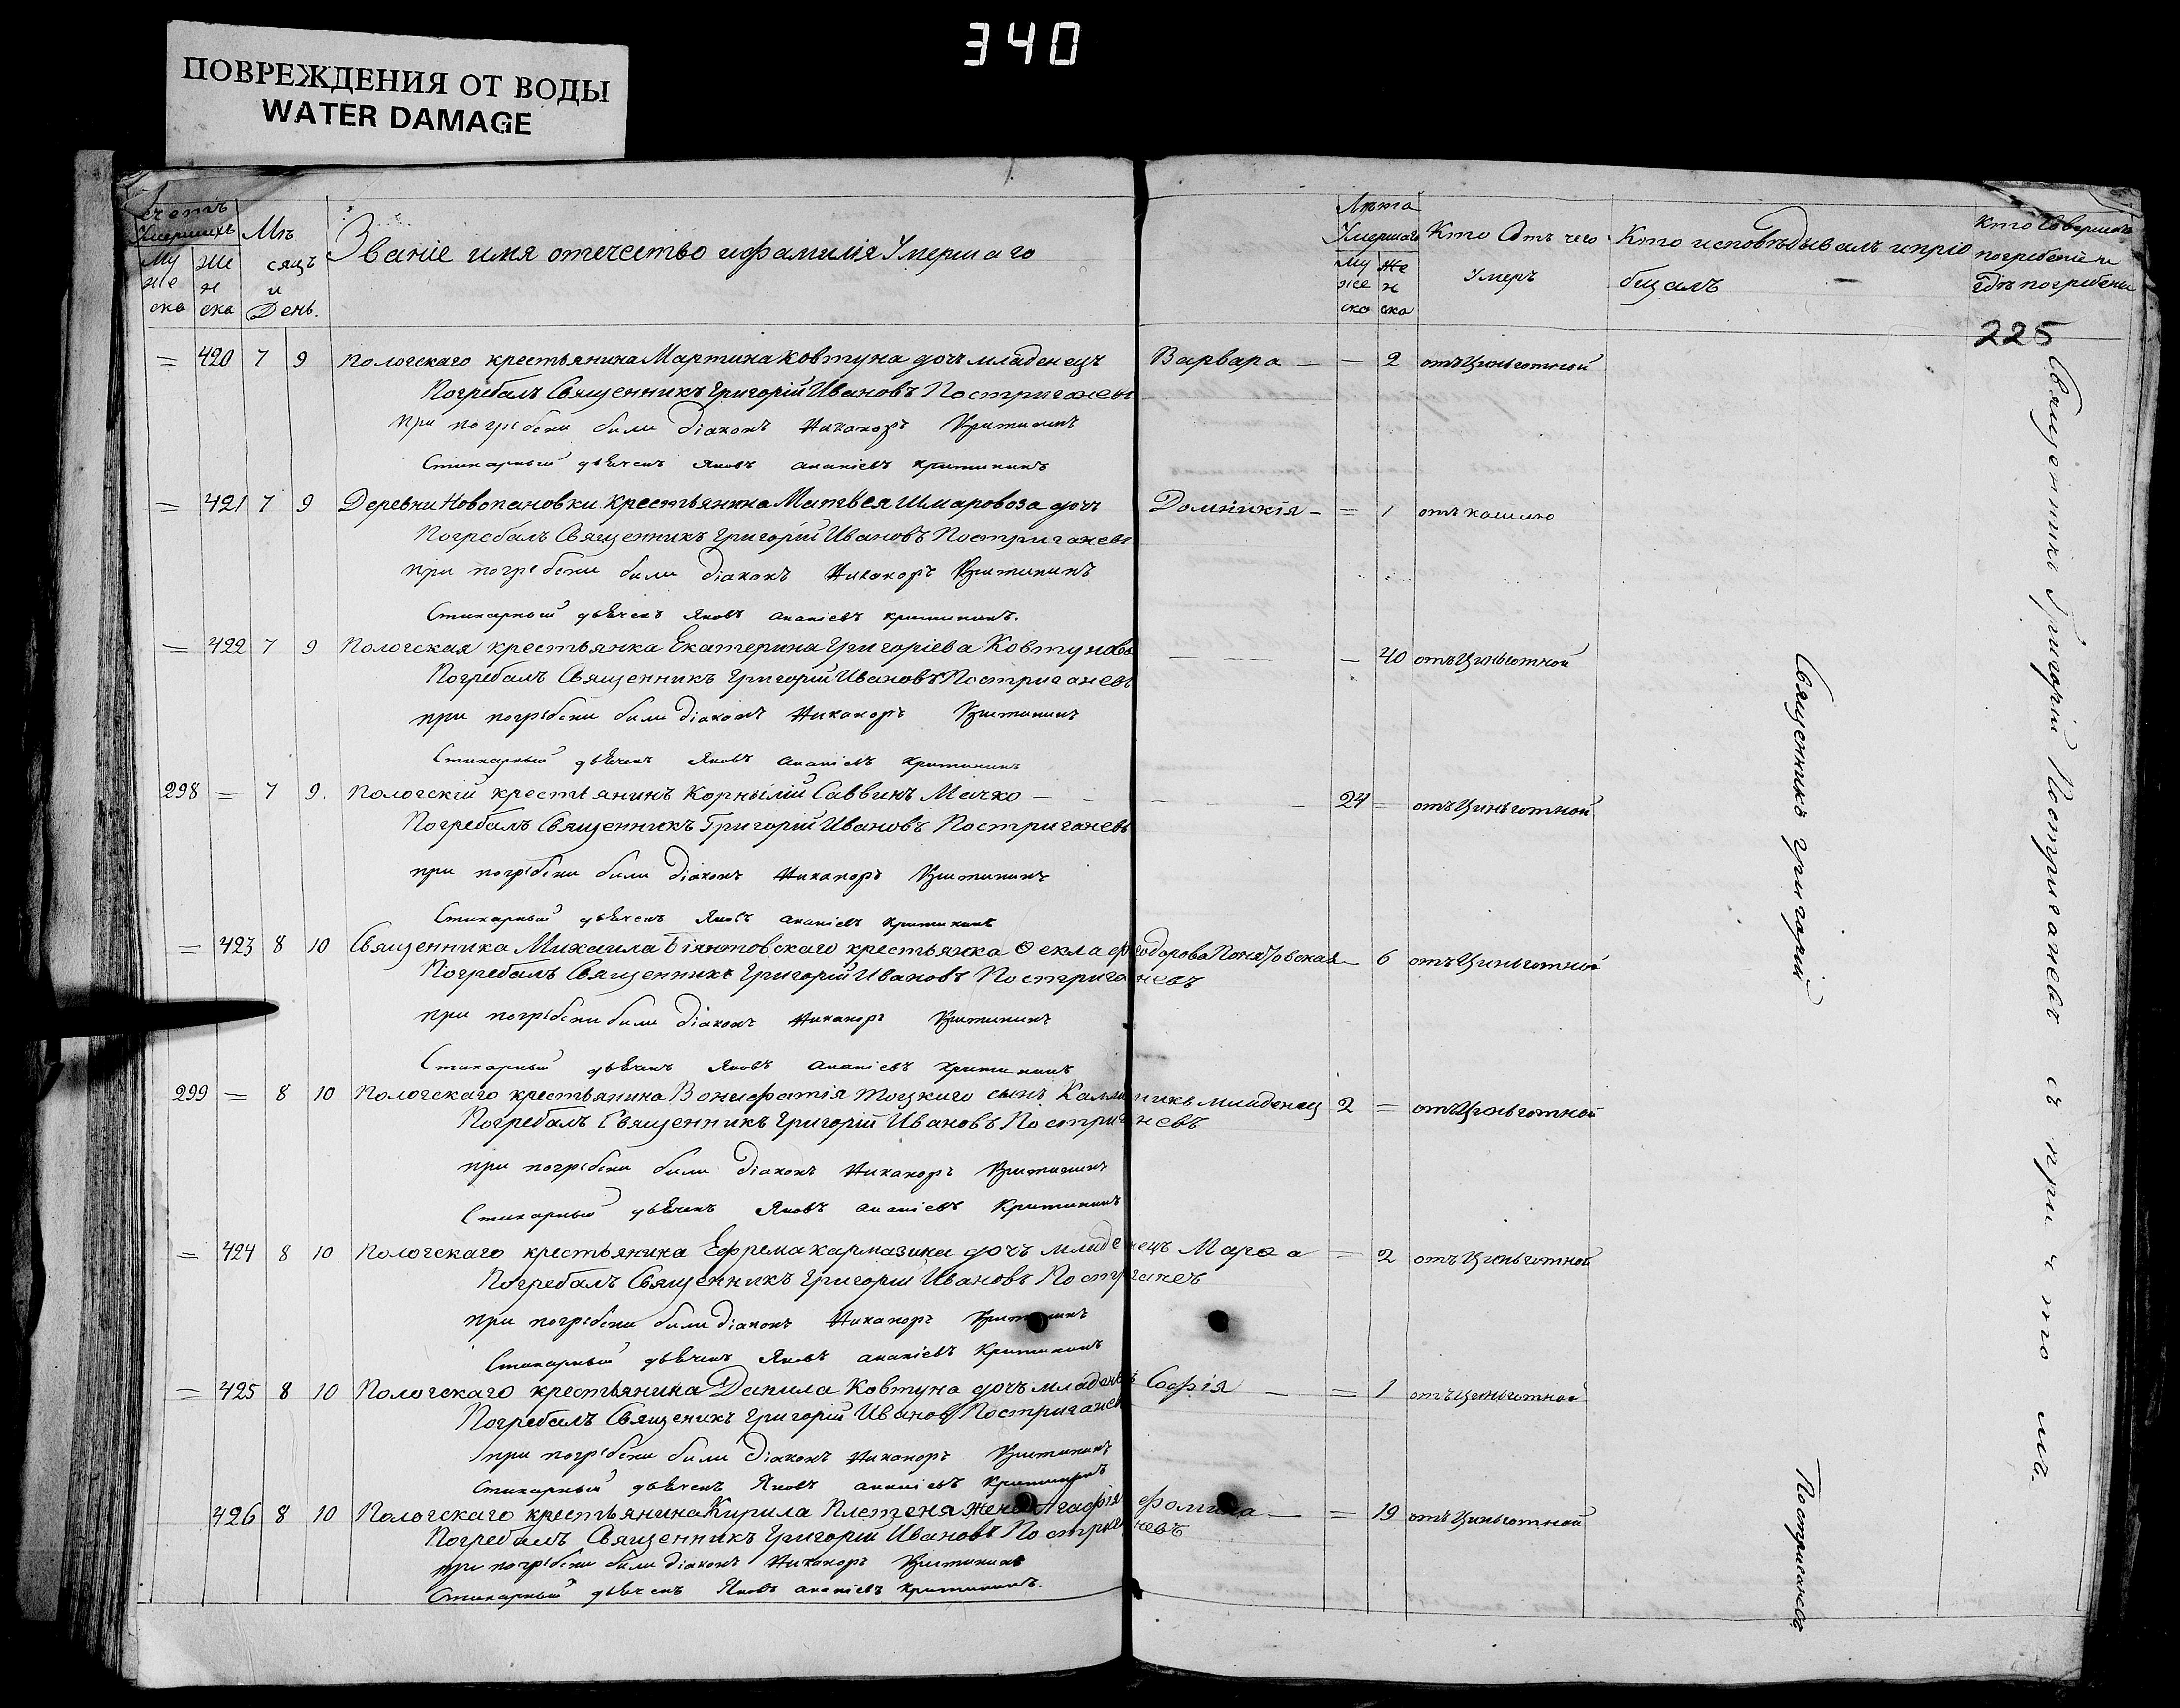 340
ПОВРЕЖДЕНИЯ ОТ ВОДЫ
WATER DAMAGE
счетъ Умершихъ
Му же ска
Же н ска
Мѣ сяцъ и День.
Званіе имя отечество и фамилія Умершаго
Лѣта Умершаго
Му же ско
Же н ска
Кто Отъ чего Умеръ
Кто исповѣдывалъ и пріобщалъ
кто Совершалъ погребеніе и гдѣ погребены
225
= 420 7 9 Пологскаго крестьянина Мартина Ковтуна дочъ младенецъ Варвара — — 2 отъ Цынготной
Погребалъ Священникъ Григорій Ивановъ Постригачевъ
при погребени били діаконъ Никаноръ Критининъ
Стихарный дьячекъ Яковъ ананіевъ критининъ
= 421 7 9 Деревни Новопановки крестьянина Матвея Шмаровоза дочъ Домникія — = 1 отъ кашлю
Погребалъ Священникъ Григорій Ивановъ Постригачевъ
при погребени били діаконъ Никаноръ Критининъ
Стихарный дьячекъ Яковъ ананіевъ критининъ.
= 422 7 9 Пологская крестьянка Екатерина Григоріева Ковтунова — 40 отъ Цынготной
Погребалъ Священникъ Григорій Ивановъ Постригачевъ
при погребени били діаконъ Никаноръ Критининъ
Стихарный дьячекъ Яковъ ананіевъ критининъ
298 = 7 9. Пологскій крестьянинъ Корнилій Саввинъ Мачко — 24 = отъ Цынготной
Погребалъ Священникъ Григорій Ивановъ Постригачевъ
при погребени били діаконъ Никаноръ Критининъ
Стихарный дьячекъ Яковъ ананіевъ критининъ
= 423 8 10 Священника Михаила крестьянка Ѳекла — 6 отъ Цынготной
Погребалъ Священникъ Григорій Ивановъ Постригачевъ
при погребени били діаконъ Никаноръ Критининъ
Стихарный дьячекъ Яковъ ананіевъ критининъ
299 = 8 10 Пологскаго крестьянина Вонифатія Тоцкиго сынъ Каллиникъ младенец 2 = отъ Цынготной
Погребалъ Священникъ Григорій Ивановъ Постригачевъ
при погребени били діаконъ Никаноръ Критининъ
Стихарный дьячекъ Яковъ ананіевъ Критининъ
= 424 8 10 Пологскаго крестьянина Ефрема кармазина дочъ младенецъ Марѳа = 2 отъ Цынготной
Погребалъ Священникъ Григорій Ивановъ
при погребени били діаконъ Никаноръ Критининъ
Стихарный дьячекъ Яковъ ананіевъ Критининъ
= 425 8 10 Пологскаго крестьянина Данила Ковтуна дочъ младенецъ Софія — = 1 отъ Цынготной
Погребалъ Священикъ Григорій Иванов Постригачевъ
при погребени били діаконъ Никаноръ Критининъ
Стихарный дьячекъ Яковъ ананіевъ Критининъ
426 8 10 Пологскаго крестьянина Кирила жена Агафія Фомина — = 19 отъ Цынготной
Погребалъ Священникъ Григорій Ивановъ Постригачевъ
при погребени били діаконъ Никаноръ Критининъ
Стихарный дьячекъ Яковъ ананіевъ критининъ.
Священникъ григорій Постригачевъ
Священникъ Григорій Постригачевъ съ причтомъ.